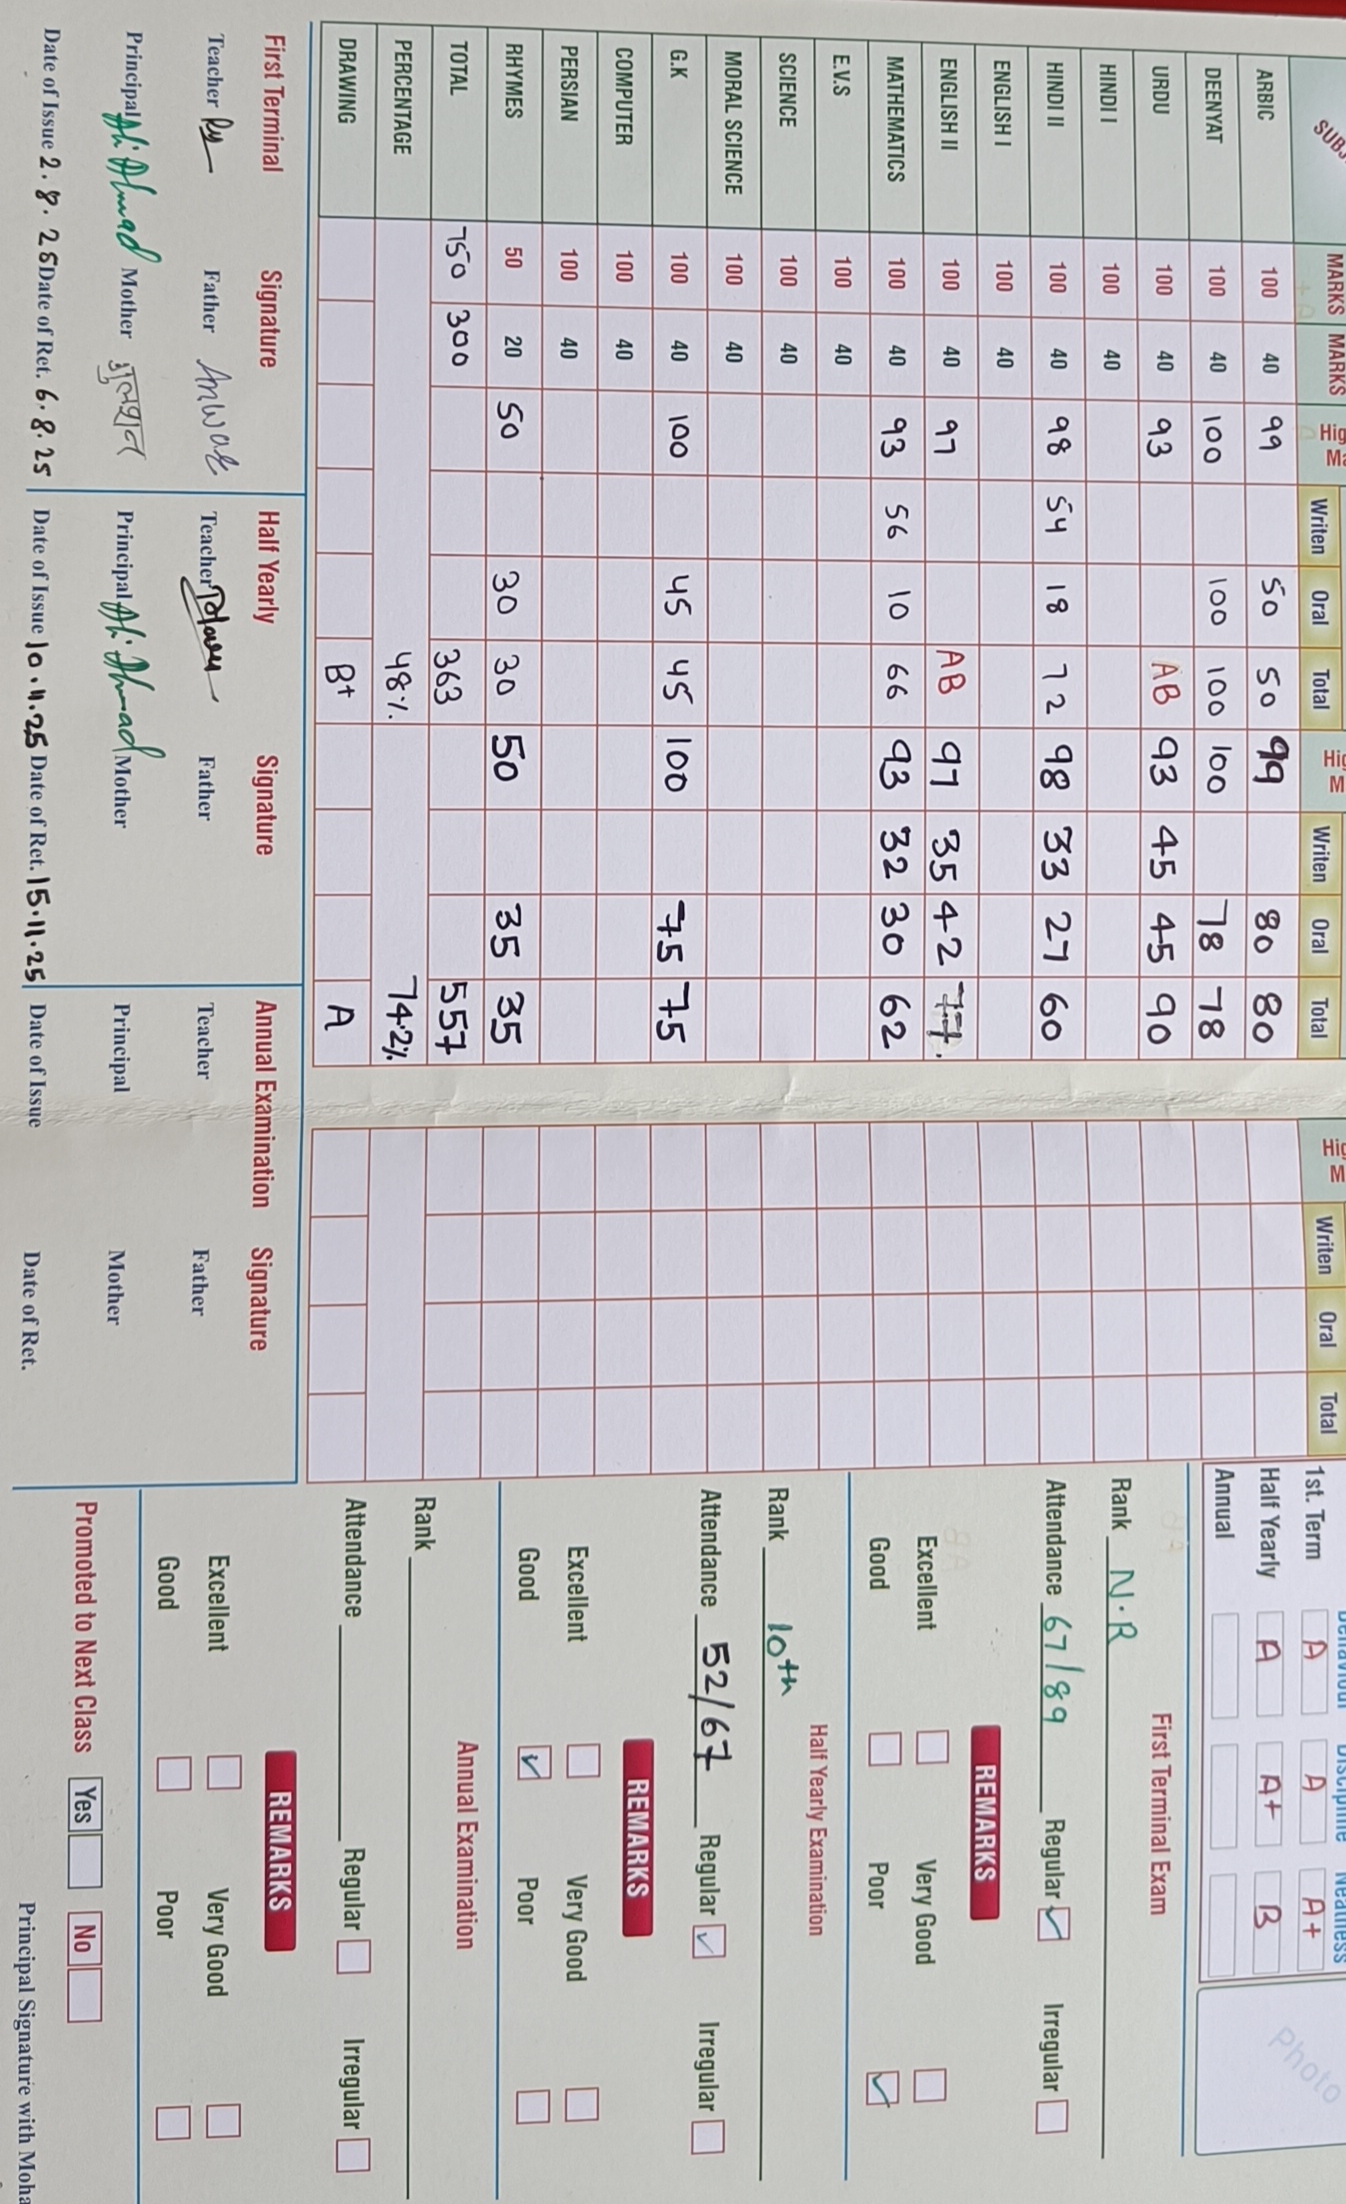 SUBJ MARKS MARKS Hig M Writen Oral Total Hig M Writen Oral Total Hig M Writen Oral Total
ARBIC 100 40 99 50 50 99 80 80
DEENYAT 100 40 100 100 100 100 78 78
URDU 100 40 93 AB 93 45 45 90
HINDI I 100 40
HINDI II 100 40 98 54 18 72 98 33 27 60
ENGLISH I 100 40
ENGLISH II 100 40 97 AB 97 35 42 77.
MATHEMATICS 100 40 93 56 10 66 93 32 30 62
E.V.S 100 40
SCIENCE 100 40
MORAL SCIENCE 100 40
G.K 100 40 100 45 45 100 75 75
COMPUTER 100 40
PERSIAN 100 40
RHYMES 50 20 50 30 30 50 35 35
TOTAL 750 300 363 557
PERCENTAGE 48% 74.2%
DRAWING B+ A
First Terminal Signature Half Yearly Signature Annual Examination Signature
Teacher Father Anwar Teacher Father Teacher Father
Principal Ali Ahmad Mother गुलशन Principal Ali Ahmad Mother Principal Mother
Date of Issue 2.8.25 Date of Ret. 6.8.25 Date of Issue 10.11.25 Date of Ret. 15.11.25 Date of Issue Date of Ret.
Behaviour Discipline Neatness
1st. Term A A A+
Half Yearly A A+ B
Annual
Photo
First Terminal Exam
Rank N.R
Attendance 67/89 Regular ✓ Irregular
REMARKS
Excellent Very Good
Good Poor ✓
Half Yearly Examination
Rank 10th
Attendance 52/67 Regular ✓ Irregular
REMARKS
Excellent Very Good
Good ✓ Poor
Annual Examination
Rank
Attendance Regular Irregular
REMARKS
Excellent Very Good
Good Poor
Promoted to Next Class Yes No
Principal Signature with Moha